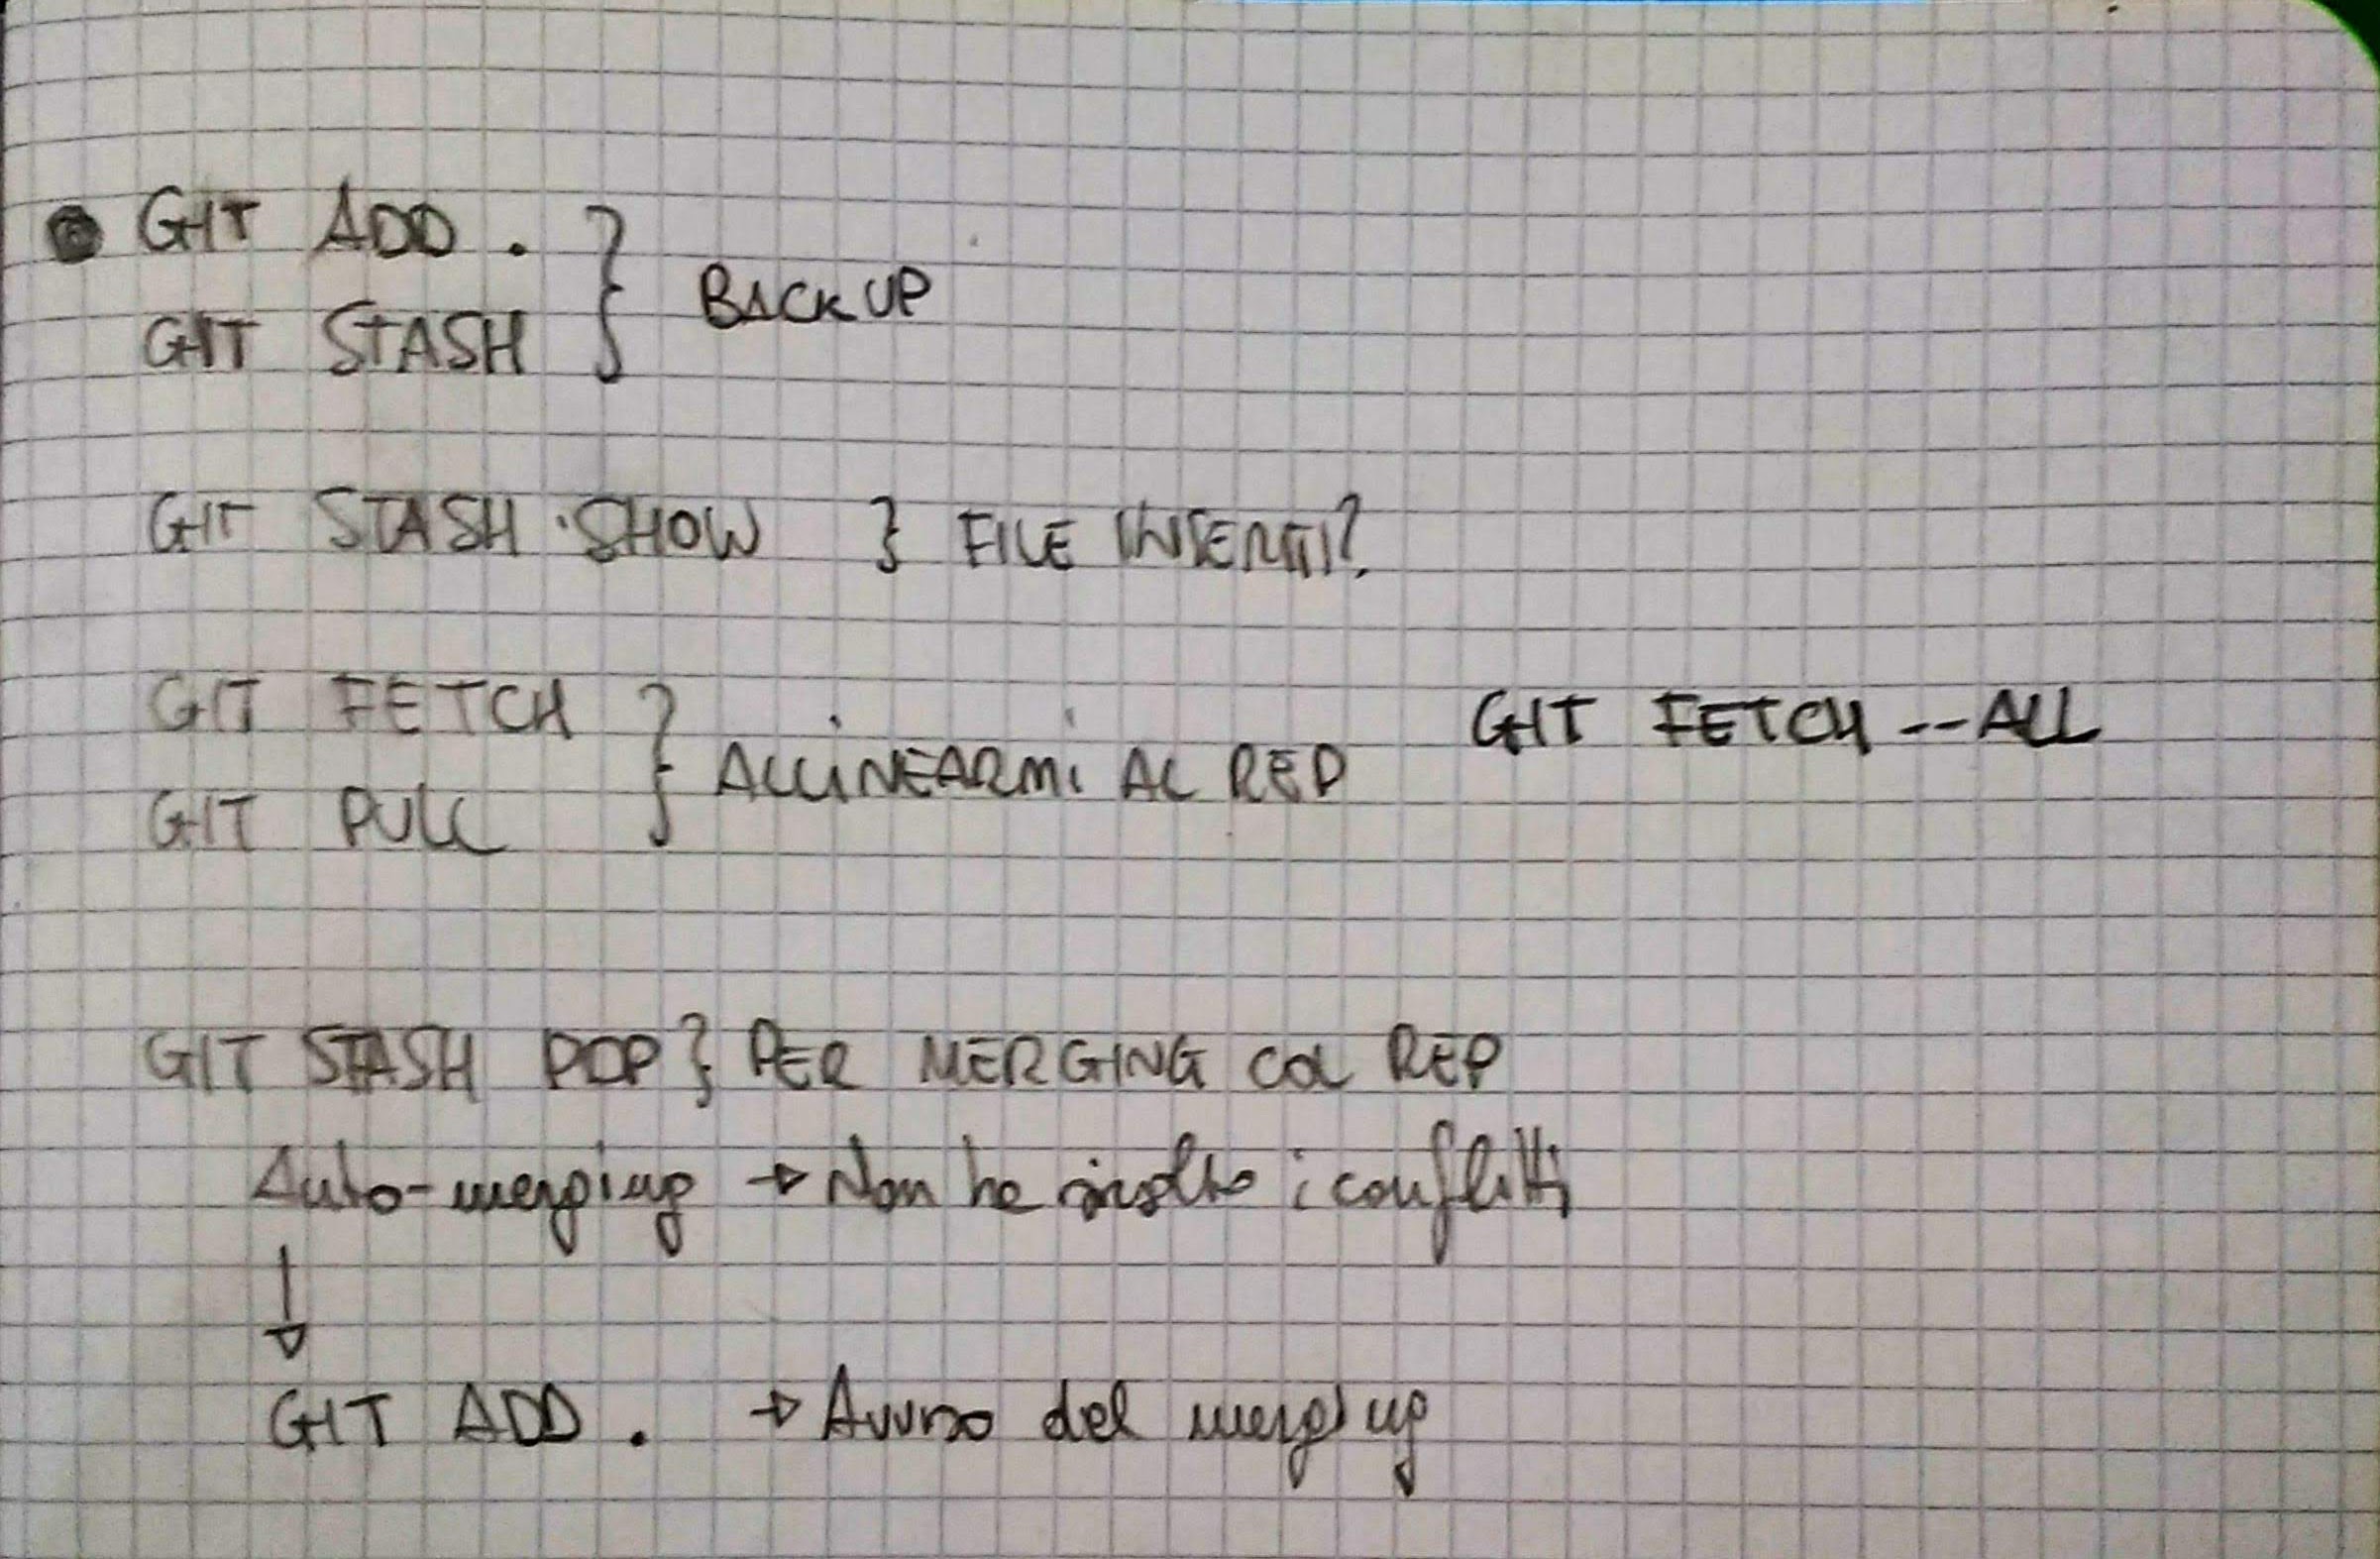 GIT ADD .
GIT STASH } BACKUP
GIT STASH SHOW } FILE INSERITI?
GIT FETCH
GIT PULL } ALLINEARMI AL REP
GIT FETCH --ALL
GIT STASH POP } PER MERGING COL REP
Auto-merging → Non ha risolto i conflitti
↓
GIT ADD . → Avviso del merging